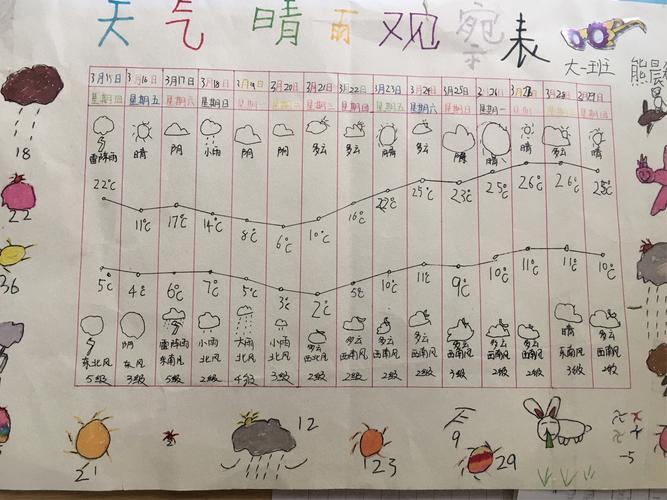 天气晴雨观察表
大一班
熊晨
3月15日 3月16日 3月17日 3月18日 3月19日 3月20日 3月21日 3月22日 3月23日 3月24日 3月25日 3月26日 3月27日 3月28日 3月29日
星期四 星期五 星期六 星期日 星期一 星期二 星期三 星期四 星期五 星期六 星期日 星期一
雷阵雨 晴 阴 小雨 阴 阴 多云 多云 晴 多云 阴 晴 多云 晴
22℃ 11℃ 17℃ 14℃ 8℃ 6℃ 10℃ 16℃ 22℃ 25℃ 23℃ 25℃ 26℃ 26℃ 25℃
5℃ 4℃ 6℃ 7℃ 5℃ 3℃ 2℃ 5℃ 10℃ 11℃ 9℃ 10℃ 11℃ 11℃ 10℃
阴 雷阵雨 小雨 大雨 小雨 多云 多云 多云 多云 多云 多云 多云 晴 多云
东北风 东风 东南风 北风 北风 北风 西北风 西南风 西南风 西南风 西南风 西南风 西南风 东南风 西南风
5级 3级 5级 2级 4级 3级 2级 2级 2级 2级 3级 2级 2级 3级 2级
18
22
36
21
2
12
23
9
29
-5